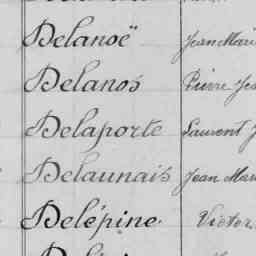 Delanoë Jean Marie
Delanos Pierre
Delaporte Laurent
Delaunais Jean
Delépine Victor